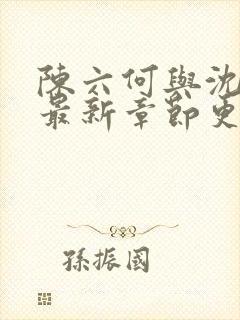 陳六何與沈
最新章節更
孫振國